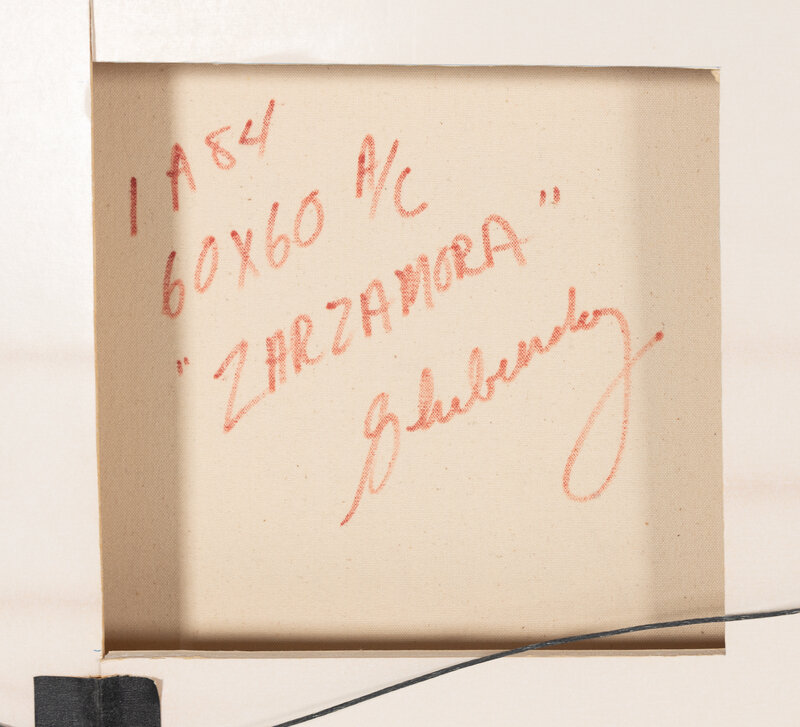 1 A 84
60X60 A/C
"ZARZAMORA"
Glubensky